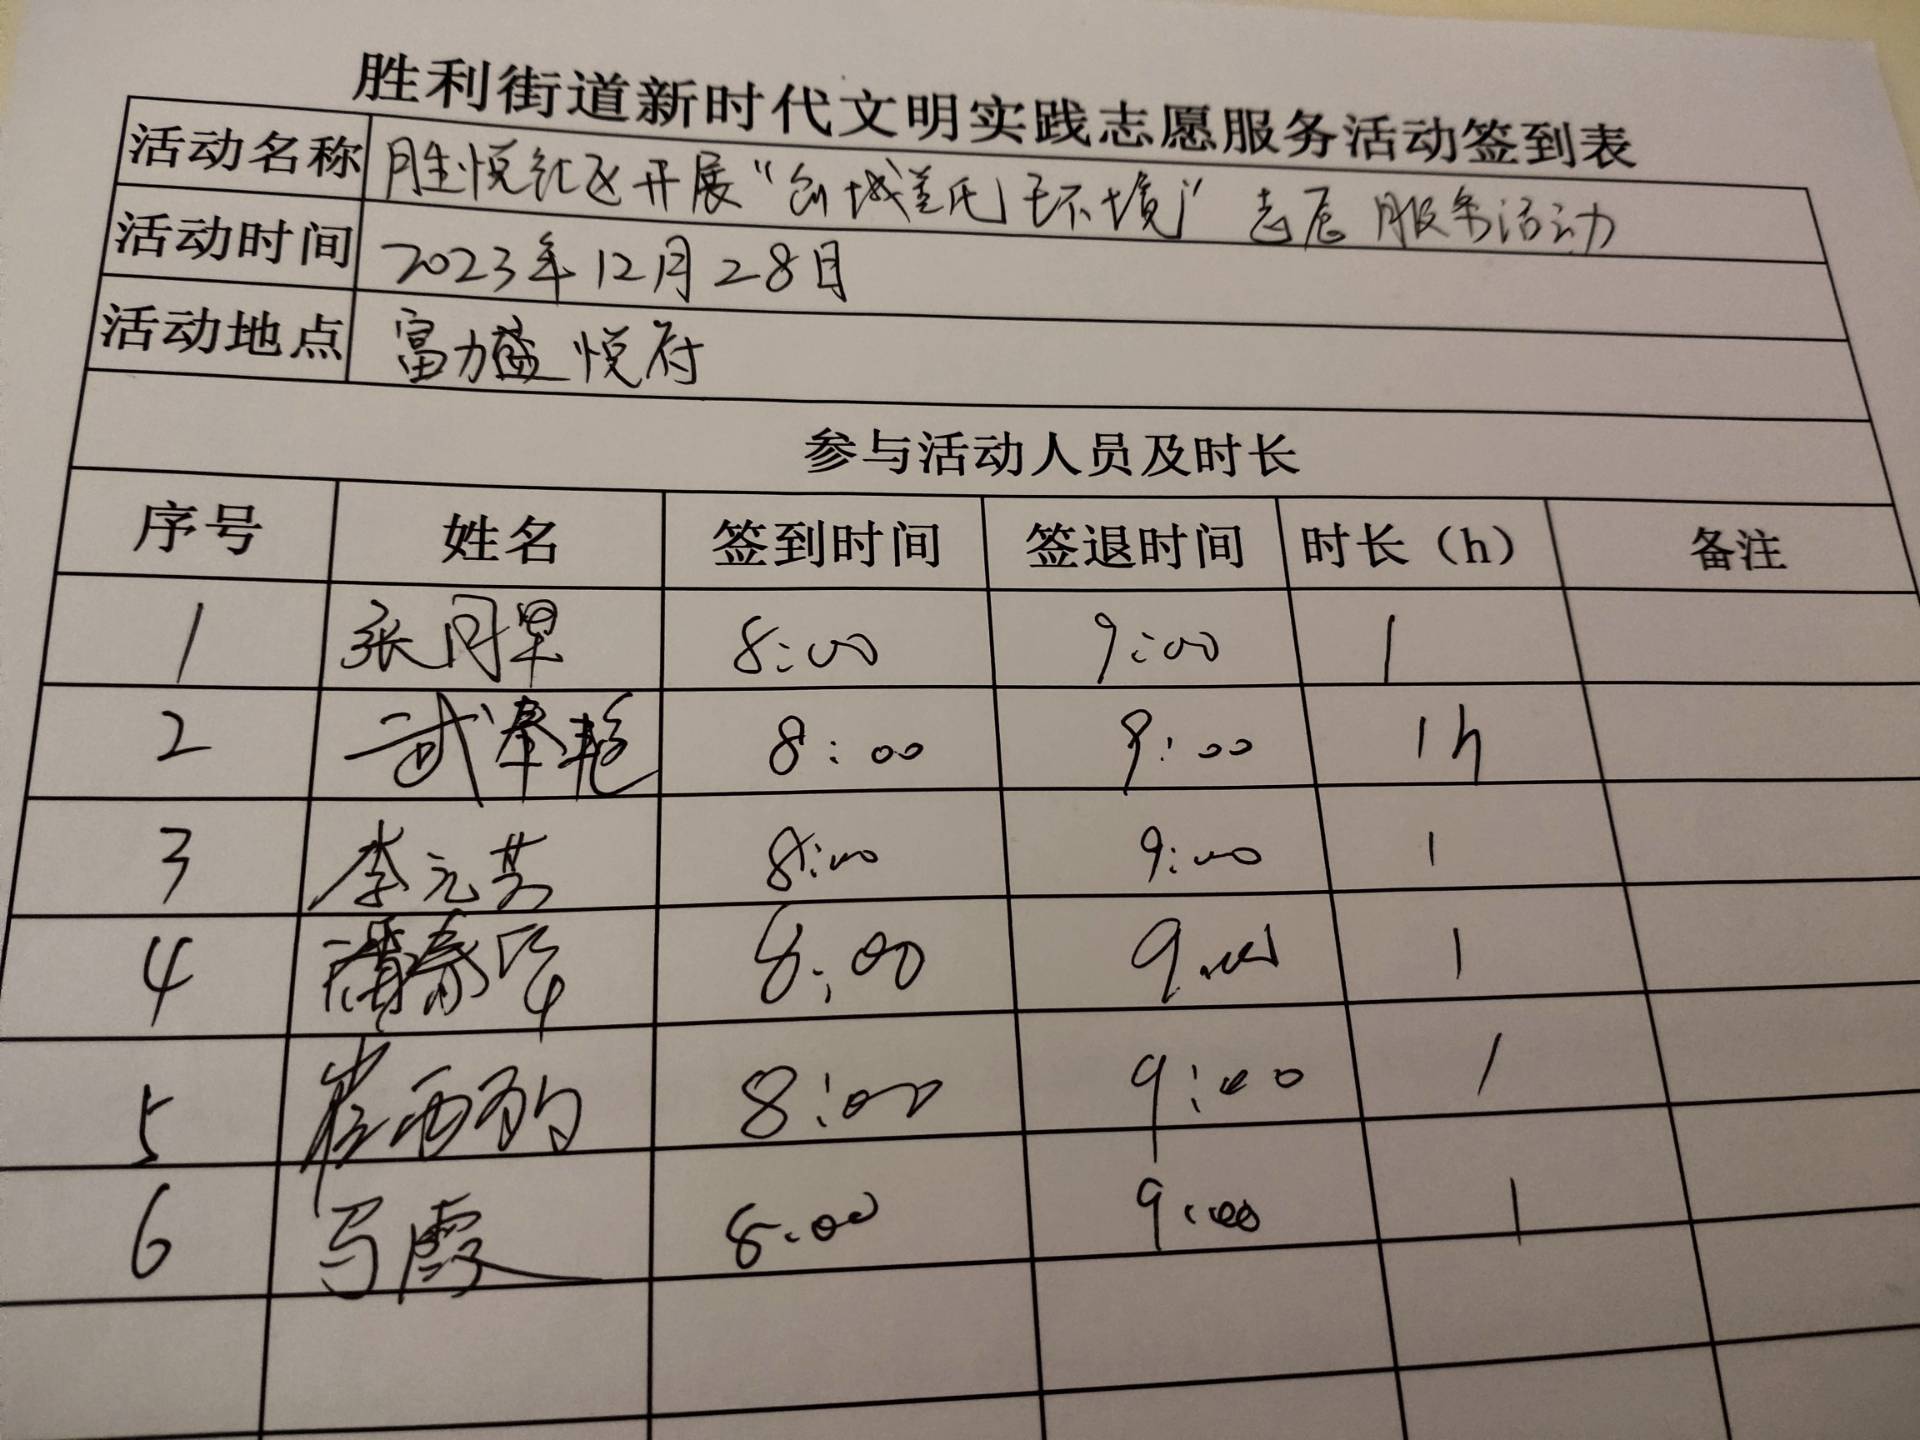 胜利街道新时代文明实践志愿服务活动签到表
活动名称 胜悦社区开展“创城 环境” 志愿服务活动
活动时间 2023年12月28日
活动地点 富力盛悦府
参与活动人员及时长
序号 姓名 签到时间 签退时间 时长（h） 备注
1 张 8:00 9:00 1
2 武 艳 8:00 9:00 1h
3 李元芳 8:00 9:00 1
4 潘春 8:00 9:00 1
5 崔 8:00 9:00 1
6 马霞 8:00 9:00 1